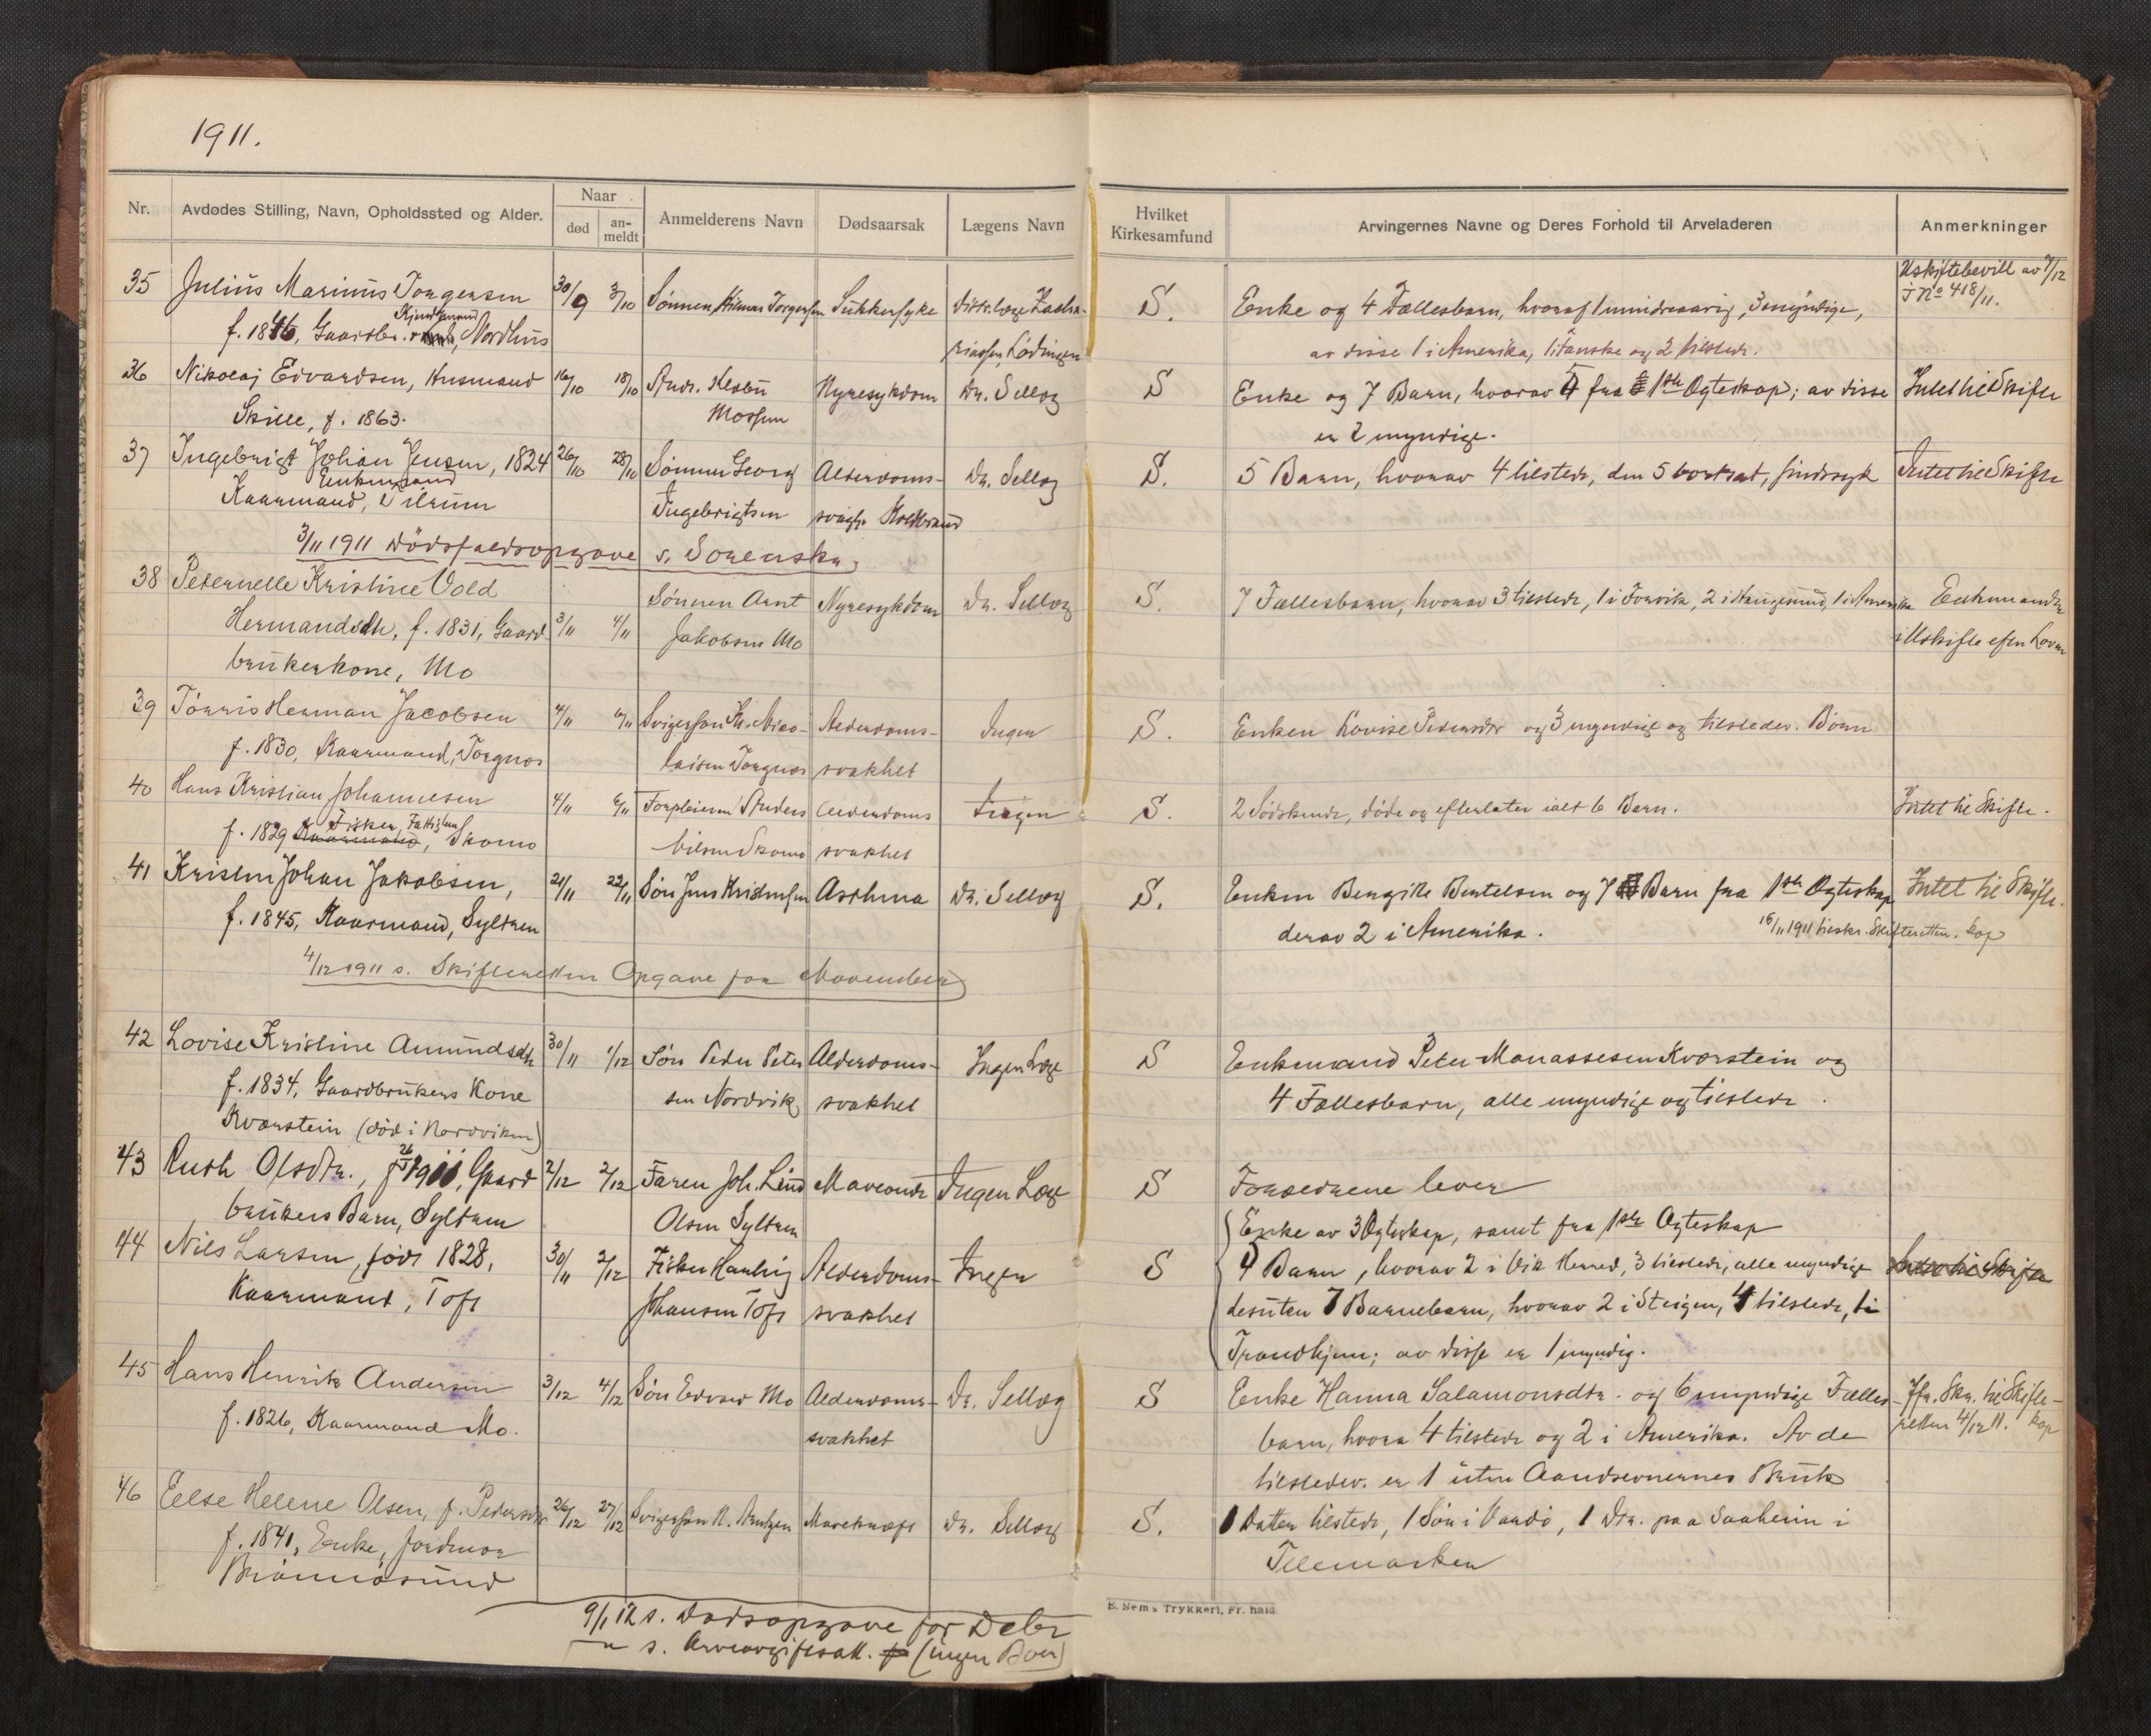 1911.
Nr. Avdødes Stilling, Navn, Opholdssted og Alder. Naar død an-meldt Anmelderens Navn Dødsaarsak Lægens Navn Hvilket Kirkesamfund Arvingernes Navne og Deres Forhold til Arveladeren Anmerkninger
35 Julius Marinus Torgersen 30/9 3/10 Sønnen Hilmar Torgersen Sukkersyke distr.læge S. Enke og 4 Fællesbarn, hvoraf 1 mindreaarig, 3 myndige, Uskiftebevill av 7/12
f. 1846, Gaardbr. Nordhus Lødingen av disse 1 i Amerika, 1 i Fauske og 2 tilstede. J No 418/11.
36 Nikolaj Edvardsen, Husmand 16/10 18/10 Andr. Nyresykdom Dr. Selløg S Enke og 7 Barn, hvorav fra 1ste Ægteskap; av disse Intet til Skifte
Skille, f. 1863. er 2 myndige.
37 Ingebrigt Johan Jensen, 1824 26/10 28/10 Sønnen Georg Alderdoms- Dr. Selløg S. 5 Barn, hvorav 4 tilstede, den 5 bortsat, sindssyk Intet til Skifte
Enkemand
Kaarmand, Tilrum Ingebrigtsen svagh. Koldbrand
3/11 1911 Dødsfaldsopgave s. Sorenskr.
38 Peternelle Kristine Vold Sønnen Arnt Nyresykdom Dr. Selløg S. 7 Fællesbarn, hvorav 3 tilstede, 1 i Forvik, 2 i Haugesund, 1 i Amerika Enkemanden
Hermandsdtr, f. 1831, Gaard- 3/11 4/11 Jakobsen Mo i Uskifte efter Loven
brukerkone, Mo
39 Tørris Herman Jacobsen 4/11 6/11 Svigersøn Kr. Nico- Alderdoms- Ingen S. Enken Lovise Pedersdtr og 3 myndige og tilstedev. Børn
f. 1830, Kaarmand, Torgnes laisen Torgnes svakhet
40 Hans Kristian Johannesen 4/11 6/11 Forpleieren Anders Alderdoms Ingen S. 2 Sødskende, døde og efterlater ialt 6 Barn. Intet til Skifte.
Fisker, Fattiglem
f. 1829 Kaarmand, Skomo Nilsen Skomo svakhet
41 Kristen Johan Jakobsen, 21/11 22/11 Søn Jens Kristensen Asthma Dr. Selløg S. Enken Bergitte Bertelsen og 7 Barn fra 1ste Ægteskap Intet til Skifte.
f. 1845, Kaarmand, Syltern derav 2 i Amerika. 16/11 1911 tilskr. Skifteretten. kop
4/12 1911 s. Skifteretten Opgave for November
42 Lovise Kristine Amundsdtr 30/11 1/12 Søn Peder Peter Alderdoms- Ingen Læge S Enkemand Peter Manassesen Kværstein og
f. 1834, Gaardbrukers Kone sen Nordvik svakhet 4 Fællesbarn, alle myndige og tilstede.
Kværstein (død i Nordviken)
43 Ruth Olsdtr., 1911, Gaard 2/12 2/12 Faren Joh. Lind Maveonde Ingen Læge S Forældrene lever
brukers Barn, Syltern Olsen Syltern
Enke av 3 Ægteskap, samt fra 1ste Ægteskap
44 Nils Larsen, født 1828, 30/11 2/12 Fisker Hartvig Alderdoms- Ingen S Barn, hvorav 2 i Vik Herred, 3 tilstede, alle myndige Intet til Skifte
Kaarmand, Toft Johansen Toft svakhet desuten 7 Barnebarn, hvorav 2 i Steigen, 4 tilstede, 1 i
Trondhjem; av disse er 1 myndig.
45 Hans Henrik Andersen 3/12 4/12 Søn Edvard Mo Alderdoms- Dr. Selløg S Enke Hanna Salamonsdtr. og 6 myndige Fælles- Jfr. Skr. til Skifte-
f. 1826, Kaarmand Mo. svakhet barn, hvora 4 tilstede og 2 i Amerika. Av de retten 4/12 11. kop
tilstedev. er 1 uten Aandsevnernes Bruk
46 Else Helene Olsen, f. Pedersdtr 26/12 27/12 Svigersøn N. Arntzen Mavekræft Dr. Selløg S. 1 Datter tilstede, 1 Søn i Vardø, 1 Dtr. paa Saaheim i
f. 1841, Enke, Jordmor Telemarken
Brønnøsund
9/1 12 s. Dødsopgave for Dcbr
" s. Arveavgiftsatt. (ingen Boer)
E. Sem's Trykkeri, Fr.hald